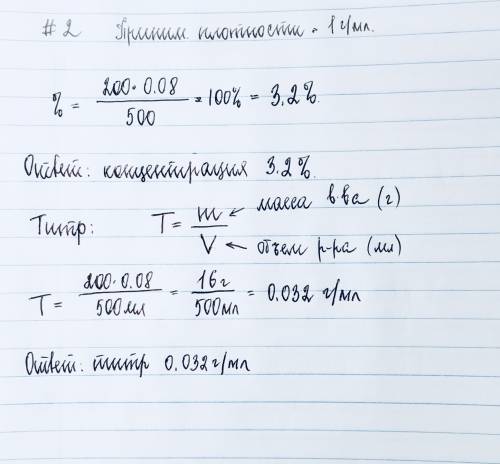 #2 Приним. плотность = 1 г/мл.
% = 200 · 0.08 / 500 × 100% = 3.2%.
Ответ: концентирация 3.2%.
Титр: T = m / V ← масса в-ва (г)
← отъем р-ра (мл)
T = 200 · 0.08 / 500мл = 16г / 500мл = 0.032 г/мл
Ответ: титр 0.032 г/мл